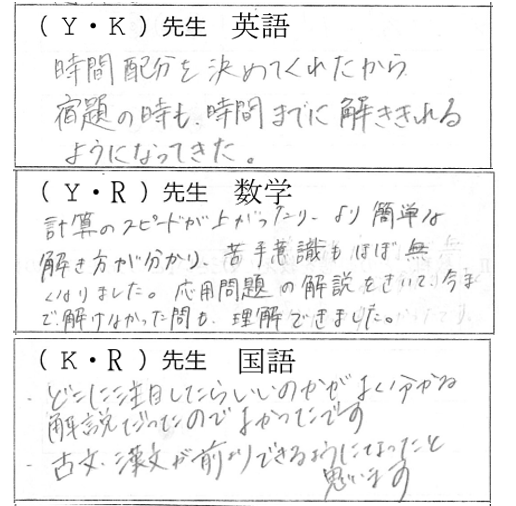 （Ｙ・Ｋ）先生　英語
時間配分を決めてくれたから
宿題の時も、時間までに解ききれる
ようになってきた。
（Ｙ・Ｒ）先生　数学
計算のスピードが上がったり、より簡単な
解き方が分かり、苦手意識もほぼ無
くなりました。応用問題の解説をきいて、今ま
で、解けなかった問も、理解できました。
（Ｋ・Ｒ）先生　国語
・どこに注目したらいいのかがよく分かる
解説だったのでよかったです
・古文、漢文が前よりできるようになったと
思います